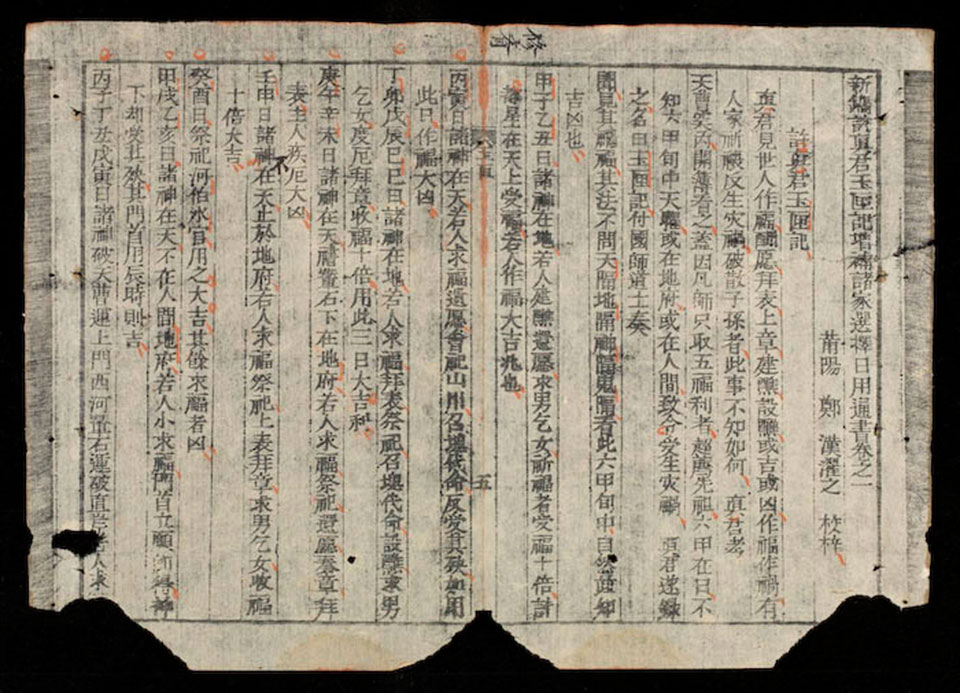 新鐫許眞君玉匣記增補諸家選擇日用通書卷之一
莆陽 鄭 漢濯之 校梓
許眞君玉匣記
眞君見世人作福酬愿拜表上章建醮設醮或吉或凶作福作禍有
人家祈禳反生灾禍破散子孫者此事不知如何 眞君考
天曹案內開簿看之蓋因凡師只取五福利者趨薦先祖六甲在日不
知六甲旬中天曹或在地府或在人間致令受生灾禍 眞君遂錄
之名曰玉匣記付國師道士奏
聞見其禍福其法不問天開地闢神關鬼隔看此六甲旬中自然故知
吉凶也
甲子乙丑日諸神在地若人建醮還愿求男乞女祈福者受福十倍計
壽星在天上受福若人作福大吉兆也
丙寅日諸神在天若人求福還愿會祀山川召塊代命反受其殃如用
此日作福大凶
丁卯戊辰己巳日諸神在地若人求福拜表祭祀召塊代命設醮求男
乞女度厄拜章收福十倍用此三日大吉利
庚午辛未日諸神在天禮鰲石下在地府若人求福祭祀還愿奏章拜
表主人疾厄大凶
壬申日諸神不在天止於地府若人求福祭祀上表拜章求男乞女收福
十倍大吉
癸酉日祭祀河伯水官用之大吉其餘求福者凶
甲戌乙亥日諸神在天不在人間地府若人小求福
下却受其殃其門首用辰時則吉
丙子丁丑戊寅日諸神破天曹運上門西河量石運破直
五
修齊